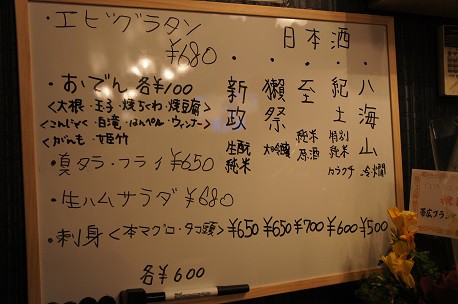 ・エビグラタン
¥680
・おでん 各¥100
<大根・玉子・焼ちくわ・焼豆腐>
<こんにゃく・白滝・はんぺん・ウィンナー>
<がんも・姫竹
・真タラ・フライ ¥650
・生ハムサラダ ¥680
・刺身<本マグロ・タコ頭>
各¥600
日本酒
・八海山 冷・燗 ¥500
・紀土 特別純米 カラクチ ¥600
・至 純米原酒 ¥700
・獺祭 大吟醸 ¥650
・新政 生酛純米 ¥650